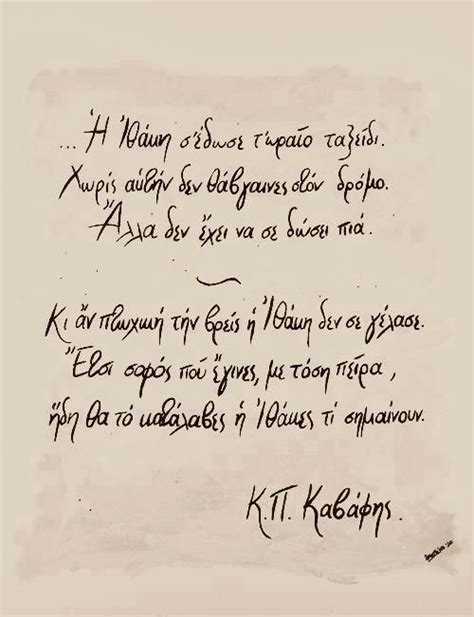 ... Ἡ Ἰθάκη σ'έδωσε τ'ωραῖο ταξεῖδι.
Χωρίς αὐτήν δεν θἄβγαινες στόν δρόμο.
Ἄλλα δεν ἔχει να σε δώσει πιά.
Κι ἄν πτωχική τήν βρεῖς ἡ Ἰθάκη δεν σε γέλασε.
Ἔτσι σοφός πού ἔγινες, με τόση πεῖρα,
ἤδη θα τό κατάλαβες ἡ Ἰθάκες τί σημαίνουν.
Κ.Π. Καβάφης.